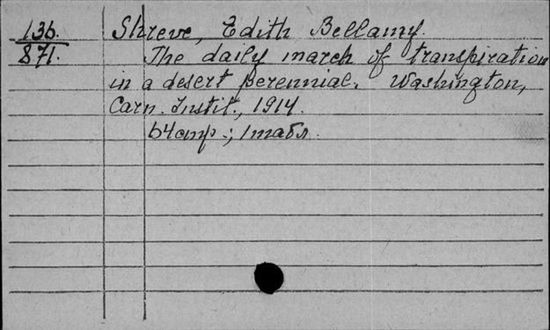 136. Shreve, Edith Bellamy.
871. The daily march of transpiration
in a desert perennial. Washington,
Carn. Instit., 1914.
64 стр.; 1 табл.